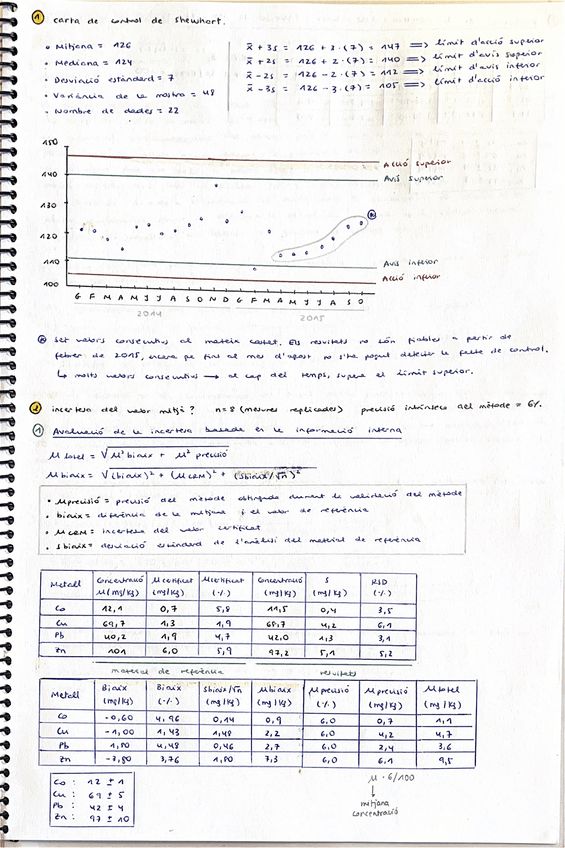 1 carta de control de Shewhart.
• Mitjana = 126
• Mediana = 124
• Desviació estàndard = 7
• Variància de la mostra = 48
• Nombre de dades = 22
x̄ + 3s = 126 + 3·(7) = 147 ⟹ límit d'acció superior
x̄ + 2s = 126 + 2·(7) = 140 ⟹ límit d'avís superior
x̄ - 2s = 126 - 2·(7) = 112 ⟹ límit d'avís inferior
x̄ - 3s = 126 - 3·(7) = 105 ⟹ límit d'acció inferior
150
140
130
120
110
100
Acció superior
Avís superior
Avís inferior
Acció inferior
G F M A M J J A S O N D G F M A M J J A S O
2014 2015
Set valors consecutius al mateix costat. Els resultats no són fiables a partir de
febrer de 2015, encara que fins al mes d'agost no s'ha pogut detectar la falta de control.
↳ molts valors consecutius → al cap del temps, supera el límit superior.
2 incertesa del valor mitjà? n=8 (mesures replicades) precisió intrínseca del mètode = 6%.
1 Avaluació de la incertesa basada en la informació interna
μ total = √μ² biaix + μ² precisió
μ biaix = √(biaix)² + (μ CRM)² + (Sbiaix/√n)²
• μ precisió = precisió del mètode obtinguda durant la validació del mètode
• biaix = diferència de la mitjana i el valor de referència
• μ CRM = incertesa del valor certificat
• s biaix = desviació estàndard de l'anàlisi del material de referència
Metall Concentració μ(mg/kg) μ certificat (mg/kg) μ certificat (%) Concentració (mg/kg) S (mg/kg) RSD (%)
Co 12,1 0,7 5,8 11,5 0,4 3,5
Cu 69,7 1,3 1,9 68,7 4,2 6,1
Pb 40,2 1,9 4,7 42,0 1,3 3,1
Zn 101 6,0 5,9 97,2 5,1 5,2
material de referència resultats
Metall Biaix (mg/kg) Biaix (%) Sbiaix/√n (mg/kg) μ biaix (mg/kg) μ precisió (mg/kg) μ precisió (mg/kg) μ total (mg/kg)
Co -0,60 4,96 0,14 0,9 6,0 0,7 1,1
Cu -1,00 1,43 1,48 2,2 6,0 4,2 4,7
Pb 1,80 4,48 0,46 2,7 6,0 2,4 3,6
Zn -3,80 3,76 1,80 7,3 6,0 6,1 9,5
Co : 12 ± 1
Cu : 69 ± 5
Pb : 42 ± 4
Zn : 97 ± 10
μ · 6/100
↓
mitjana
concentració